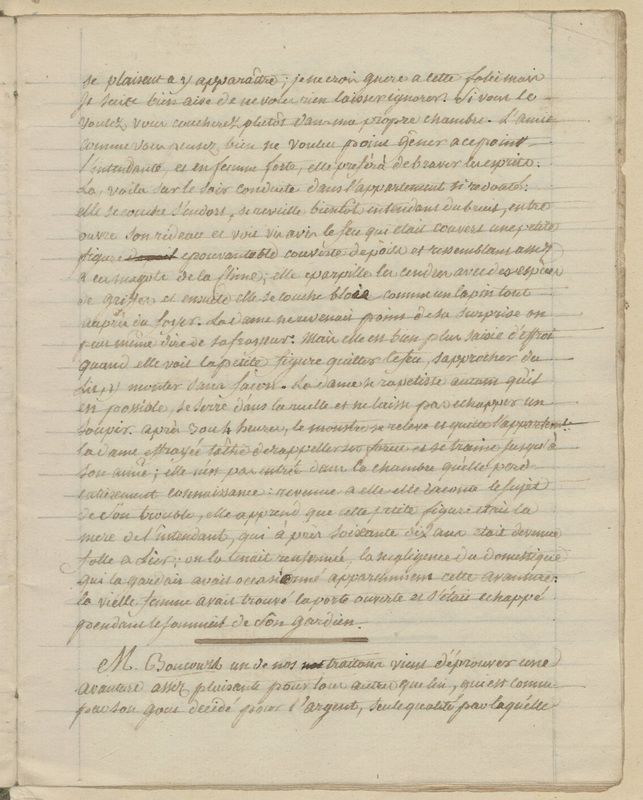 se plaisent a y apparaître; je ne croi guere a cette folie mais
je suis bien aise de ne vous rien laisser ignorer. Si vous le
voulez, vous coucherez plutôt dans ma propre chambre. L'amie
comme vous pensez bien ne voulut point gêner a ce point
l'intendante, et en femme forte, elle préféra de braver les esprits.
La voila sur le soir conduite dans l'appartement si redouté:
elle se couche s'endort, se reveille bientôt entendant du bruit, entre
ouvre son rideau et voit vis avis le feu qui était couvert une petite
figure epouvantable couverte de poils et ressemblant assez
de la ; elle eparpille les cendres avec des especes
de griffes et ensuite elle se couche comme un lapin tout
auprès du foyer. La dame ne revenait point de sa surprise on
peut même dire de sa frayeur. Mais elle est bien plus saisie d'effroi
quand elle voit la petite figure quitter le feu, s'approcher du
lit, y monter sans façon. La dame se rapetisse autant qu'il
est possible, se serre dans la ruelle et ne laisse pas echapper un
soupir. après 3 ou 4 heures, le monstre se releve et quitte l'appartement.
la dame effrayée tâche de rappeller ses forces et se traine jusqu'à
son amie; elle n'est pas entrée dans la chambre qu'elle perd
entierement connaissance: revenue a elle elle raconte le sujet
de son trouble, elle apprend que cette petite figure etait la
mere de l'intendant, qui à près soixante dix ans etait devenue
folle a lier; on la tenait renfermée, la negligence du domestique
qui la gardait avait occasionné cette avanture:
la vielle femme avait trouvé la porte ouverte et s'était echappé
pendant le sommeil de son gardien.
M. un de nos traitans vient d'éprouver une
avanture assez plaisante pour tout autre que lui, qui est connu
par son gout décidé pour l'argent, seule qualité par laquelle